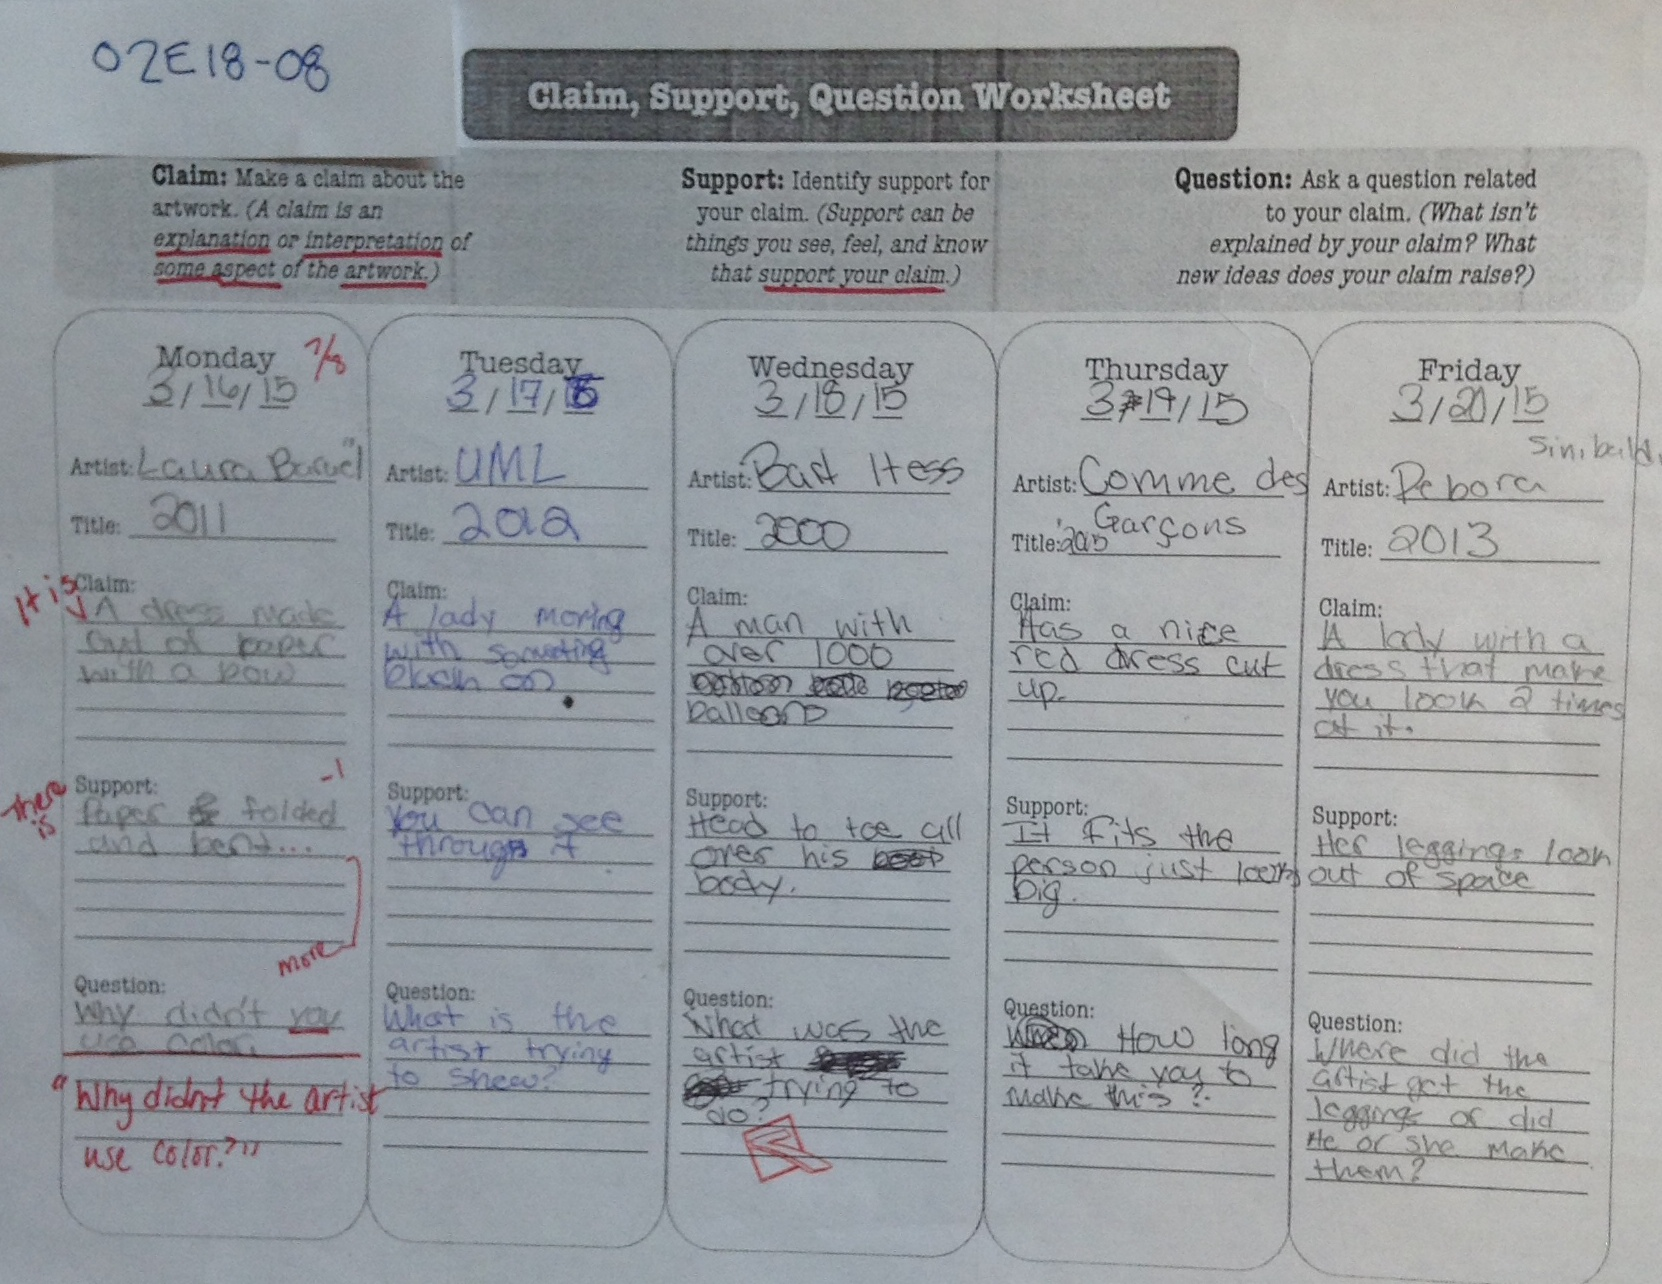 02E18-08
Claim, Support, Question Worksheet
Claim: Make a claim about the
artwork. (A claim is an
explanation or interpretation of
some aspect of the artwork.)
Support: Identify support for
your claim. (Support can be
things you see, feel, and know
that support your claim.)
Question: Ask a question related
to your claim. (What isn't
explained by your claim? What
new ideas does your claim raise?)
Monday 7/8
3/16/15
Artist: Laura
Title: 2011
It is
Claim:
A dress made
out of paper
with a bow
-1
Support:
there is
Paper folded
and bent...
more
Question:
Why didn't you
use color.
"Why didn't the artist
use color?"
Tuesday
3/17/15
Artist: UML
Title: 2012
Claim:
A lady moving
with
on
Support:
You can see
through it
Question:
What is the
artist trying
to show?
Wednesday
3/18/15
Artist: Bart Hess
Title: 2000
Claim:
A man with
over 1000
balloons
Support:
Head to toe all
over his
body.
Question:
What was the
artist
trying to
do?
Thursday
3/19/15
Artist: Comme des
Garçons
Title: 2015
Claim:
Has a nice
red dress cut
up.
Support:
It fits the
person just looks
big.
Question:
How long
it take you to
make this?
Friday
3/20/15
Sinibaldi
Artist: Debora
Title: 2013
Claim:
A lady with a
dress that make
you look 2 times
at it.
Support:
Her leggings look
out of space
Question:
Where did the
artist get the
leggings or did
He or she make
them?